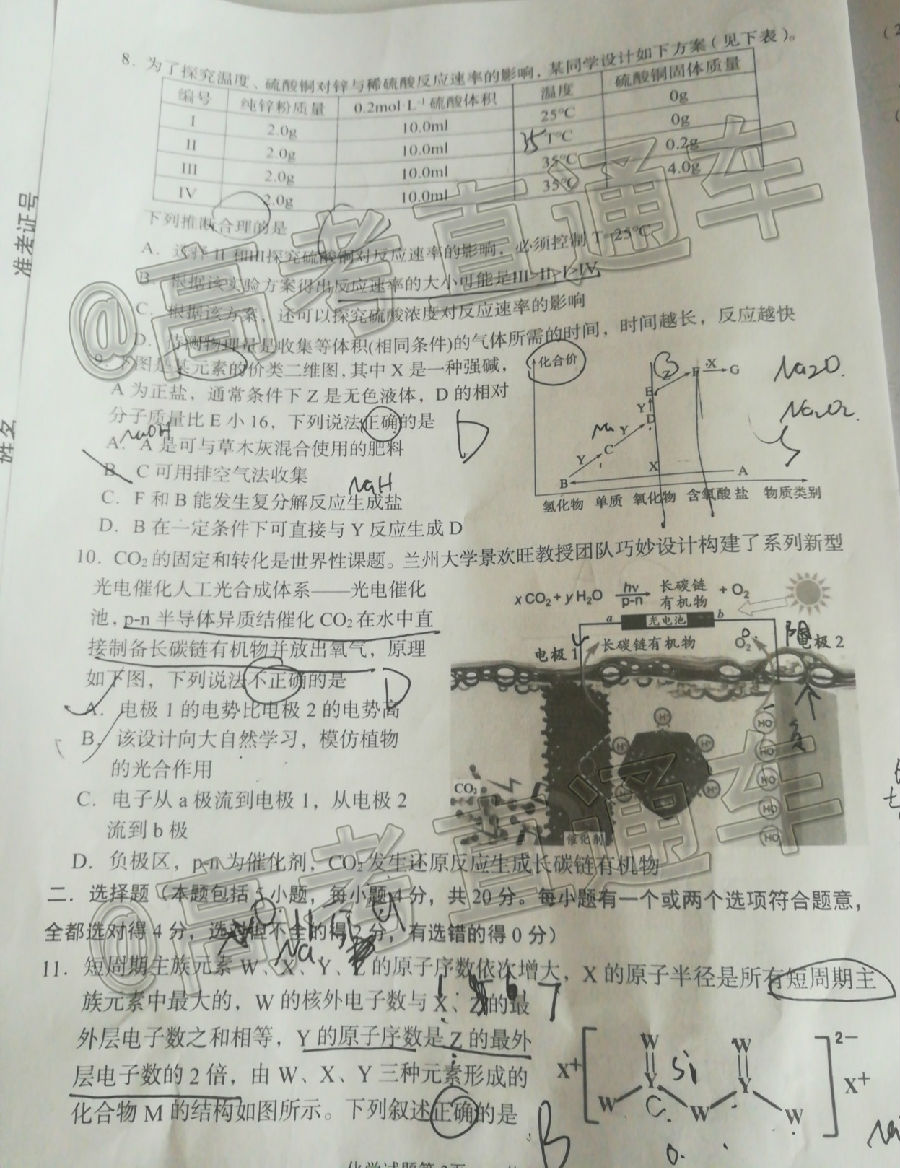 8. 为了探究温度、硫酸铜对锌与稀硫酸反应速率的影响,某同学设计如下方案(见下表)。
编号 纯锌粉质量 0.2mol·L⁻¹硫酸体积 温度 硫酸铜固体质量
I 2.0g 10.0ml 25℃ 0g
II 2.0g 10.0ml 35 T℃ 0g
III 2.0g 10.0ml 35℃ 0.2g
IV 2.0g 10.0ml 35℃ 4.0g
下列推断合理的是
A. 选择 II 和III探究硫酸铜对反应速率的影响,必须控制 T=25℃
B. 根据该实验方案得出反应速率的大小可能是III>II>I>IV
C. 根据该方案,还可以探究硫酸浓度对反应速率的影响
D. 待测物理量是收集等体积(相同条件)的气体所需的时间,时间越长,反应越快
9. 下图是某元素的价类二维图,其中 X 是一种强碱,
A 为正盐,通常条件下 Z 是无色液体,D 的相对
分子质量比 E 小 16,下列说法正确的是
D
NaOH
A. A 是可与草木灰混合使用的肥料
B. C 可用排空气法收集
NaH
C. F 和 B 能发生复分解反应生成盐
D. B 在一定条件下可直接与 Y 反应生成 D
化合价
Z F X G
E
Y
D
Na Y
Y C
X
B A
氢化物 单质 氧化物 含氧酸 盐 物质类别
Na2O.
Na2O2
10. CO₂ 的固定和转化是世界性课题。兰州大学景欢旺教授团队巧妙设计构建了系列新型
光电催化人工光合成体系——光电催化
池,p-n 半导体异质结催化 CO₂ 在水中直
接制备长碳链有机物并放出氧气,原理
如下图,下列说法不正确的是
D
A. 电极 1 的电势比电极 2 的电势高
B. 该设计向大自然学习,模仿植物
的光合作用
C. 电子从 a 极流到电极 1,从电极 2
流到 b 极
D. 负极区,p-n 为催化剂,CO₂ 发生还原反应生成长碳链有机物
xCO₂+yH₂O hv p-n 长碳链有机物 +O₂
a 光电池 b
电极 1 长碳链有机物 O₂ 电极 2
阳
CO₂
H⁺
催化剂
二、选择题(本题包括 5 小题,每小题 4 分,共 20 分。每小题有一个或两个选项符合题意,
全都选对得 4 分,选对但不全的得 2 分,有选错的得 0 分)
Na
11. 短周期主族元素 W、X、Y、Z 的原子序数依次增大,X 的原子半径是所有短周期主
族元素中最大的,W 的核外电子数与 X、Z 的最
外层电子数之和相等,Y 的原子序数是 Z 的最外
层电子数的 2 倍,由 W、X、Y 三种元素形成的
化合物 M 的结构如图所示。下列叙述正确的是
B
X⁺ 2- X⁺
W W
Y Si Y
W C W W
姓名
准考证号